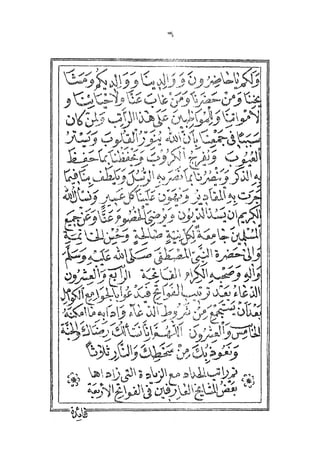 ٦
ولكم يا حاضرون ووالدينا ووالديكم ومشا
يخنا ومن حضرنا ومن غاب عنا ولأحيائنا و
لأمواتنا وللمواظبين على هذا الراتب ولمن كان
سببا في جمعنا بأن الله ينور القلوب ويستر
العيوب ويفرج الكروب ويحفظنا بما حفظ
به الذكر وينصرنا بما نصر به الرسل ويلطف بنا فيما
جرت به المقادير ويهون علينا كل عسير ونسأل الله
الكريم أن يسد الديون ويرضى الخصوم عنا وعن جميع
المسلمين جامعة لكل نية صالحة وحسن الخاتمة
والى حضرة النبي المصطفى صلى الله عليه وسلم
وآله وصحبه الكرام الفاتحة الرابع والعشرون
الدعاء بعد ترتيب الفواتح فيدعو بالجوامع الكوامل
بعد أن يستجمع من شروط الدعاء وآدابه ما أمكنه
الخامس والعشرون اللهم إنا نسألك رضاك والجنة
ونعوذ بك من سخطك والنار ثلاثا
تم راتب الحداد مع الزيادة التي زادها
بعض المشايخ العارفين في الفواتح الأربعة
فائدة